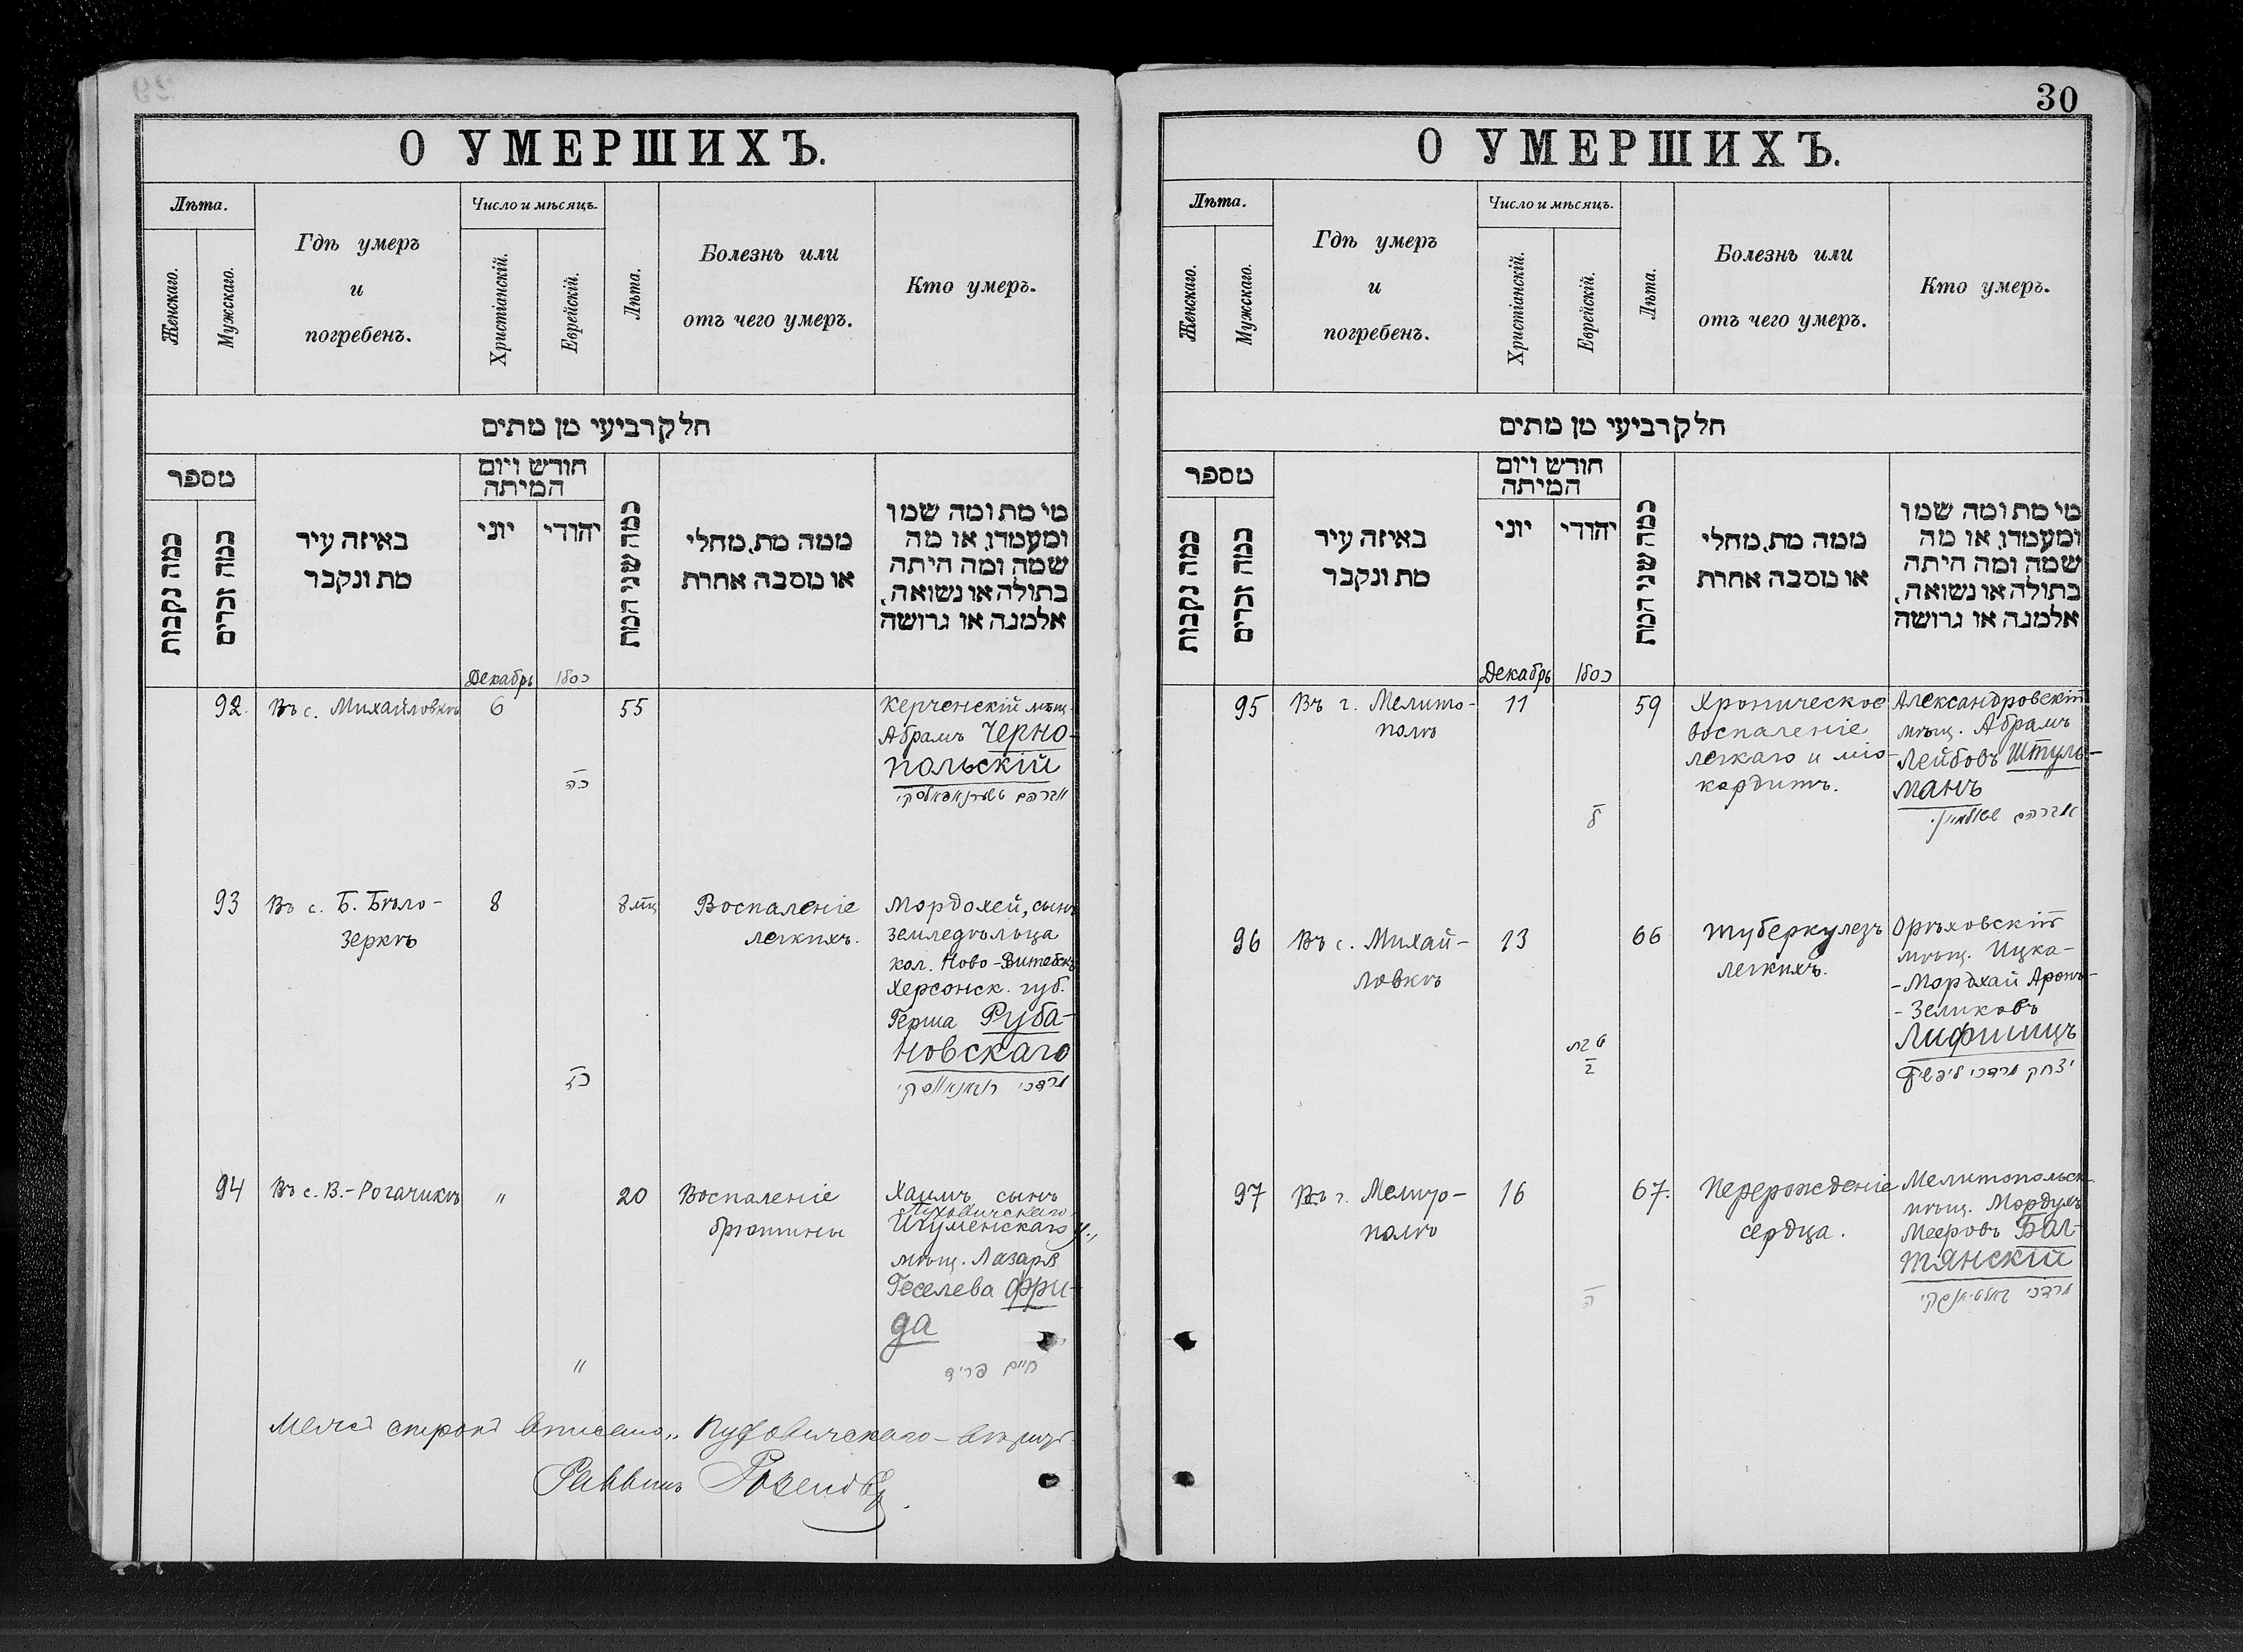 О УМЕРШИХЪ.
Лѣта.
Женскаго.
Мужскаго.
Гдѣ умеръ
и
погребенъ.
Число и мѣсяцъ.
Христіанскій.
Еврейскій.
Лѣта.
Болезнь или
отъ чего умеръ.
Кто умеръ.
חלק רביעי מן מתים
מספר
כמה נקבות
כמה זכרים
באיזה עיר
מת ונקבר
חודש ויום
המיתה
יוני
יהודי
כמה שני המת
ממה מת, מחלי
או מסבה אחרת
מי מת ומה שמו
ומעמדו, או מה
שמה ומה היתה
בתולה או נשואה,
אלמנה או גרושה
Декабрь
כסלו
92.
Въ с. Михайловкѣ
6
כה
55
Керченскій мѣщ.
Абрамъ Черно-
польскій
93
Въ с. Б. Бѣло-
зеркѣ
8
כז
8 мц
Воспаленіе
легкихъ.
Мордохей, сынъ
земледѣльца
кол. Ново-Витебскъ
Херсонск. губ.
Герша Руба-
новскаго
94
Въ с. В.-Рогачикѣ
"
"
20
Воспаленіе
брюшины
Хаимъ сынъ
Пуховичскаго
Игуменскаго у.,
мѣщ. Лазаря
Геселева Фри-
да
חיים פריד
Пуховичскаго
Раввинъ
30
О УМЕРШИХЪ.
Лѣта.
Женскаго.
Мужскаго.
Гдѣ умеръ
и
погребенъ.
Число и мѣсяцъ.
Христіанскій.
Еврейскій.
Лѣта.
Болезнь или
отъ чего умеръ.
Кто умеръ.
חלק רביעי מן מתים
מספר
כמה נקבות
כמה זכרים
באיזה עיר
מת ונקבר
חודש ויום
המיתה
יוני
יהודי
כמה שני המת
ממה מת, מחלי
או מסבה אחרת
מי מת ומה שמו
ומעמדו, או מה
שמה ומה היתה
בתולה או נשואה,
אלמנה או גרושה
Декабрь
כסלו
95
Въ г. Мелито-
полѣ
11
ל
59
Хроническое
воспаленіе
легкаго и міо-
кардитъ.
Александровскій
мѣщ. Абрамъ
Лейбовъ Штуль-
манъ
96
Въ с. Михай-
ловкѣ
13
טבת
ב
66
Туберкулезъ
легкихъ.
Орѣховскій
мѣщ. Ицка-
-Мордхай Аронъ-
-Зеликовъ
Лифшицъ
יצחק מרדכי ליפשיץ
97
Въ г. Мелито-
полѣ
16
ה
67.
Перерожденіе
сердца.
Мелитопольск.
мѣщ. Мордухъ
Мееровъ Бал-
тянскій